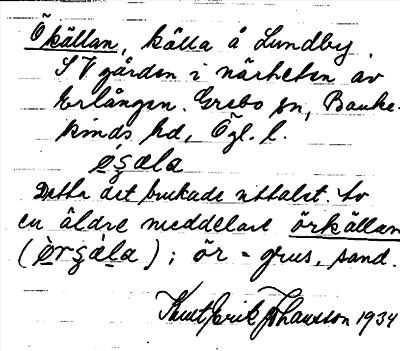 Ökällan, källa å Lundby
SV gården i närheten av
Erlången. Grebo sn, Banke-
kinds hd, Ögl. l.
øşæla
Detta det brukade uttalet. Av
en äldre meddelare örkällan
(ørşæla); ör = grus, sand.
Knut Erik Johansson 1934